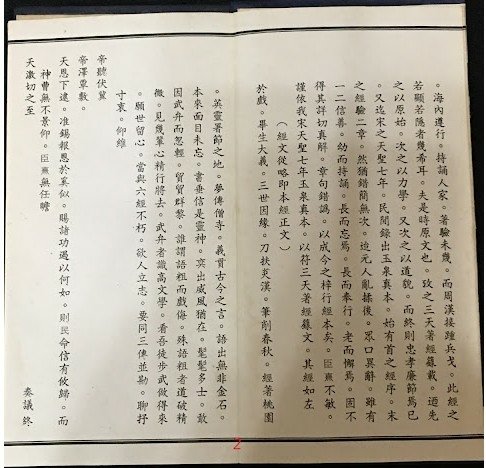 。海內遵行。持誦人家。著驗未幾。而周漢接踵兵戈。此經之
若顯若隱者幾希耳。夫是時原文也。攷之三天著經籙載。迺先
之以原始。次之以力學。又次之以道貌。而終則忠孝廉節焉已
。又迄宋之天聖七年。民間錄出玉泉真本。始有首之經序。末
之經驗二章。然猶錯簡無次。迨元人亂揉後。眾口異辭。雖有
一二信善。幼而持誦。長而忘焉。長而奉行。老而懈焉。固不
得其詳切真解。章句錯譌。以成今之梓行經本矣。臣熏不敏。
謹依我宋天聖七年玉泉真本。以符三天著經籙文。其經如左
(經文從略即本經正文)
於戲。畢生大義。三世因緣。刀扶炎漢。筆削春秋。經著桃園
。英靈署節之地。夢傳僧寺。義貫古今之言。語出無非金石。
本來面目未忘。書垂信是靈神。奕出威風猶在。髦髦多士。敢
因武弁而忽輕。貿貿群黎。誰謂語粗而戲侮。殊語粗者道破精
微。見幾輩心精行將去。武弁者識高文學。看吾徒步武做得來
。願世留心。當與六經不朽。欲人立志。要同三俥並勛。聊抒
寸衷。仰維
帝聽伏冀
帝澤覃敷。
天恩下逮。准錫報恩於冥似。賜諸功過以何如。則民命信有攸歸。而
神曹無不景仰。臣熏無任瞻
天激切之至
奏議終
2